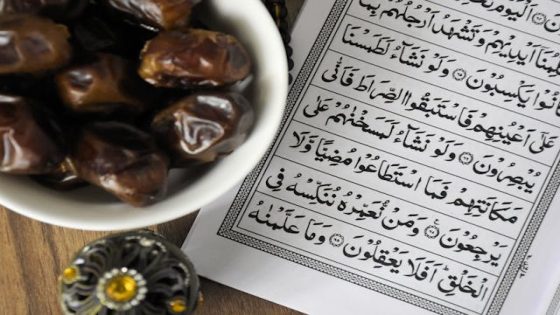 اَلْيَوْمَ نَخْتِمُ
اَيْدِيْهِمْ وَتَشْهَدُ اَرْجُلُهُمْ بِمَا
يَكْسِبُوْنَ ۝ وَلَوْ نَشَآءُ لَطَمَسْنَا
عَلٰٓى اَعْيُنِهِمْ فَاسْتَبَقُوا الصِّرَاطَ فَاَنّٰى
يُبْصِرُوْنَ ۝ وَلَوْ نَشَآءُ لَمَسَخْنٰهُمْ عَلٰى
مَكَانَتِهِمْ فَمَا اسْتَطَاعُوْا مُضِيًّا وَّلَا
يَرْجِعُوْنَ ۝ وَمَنْ نُّعَمِّرْهُ نُنَكِّسْهُ فِى
الْخَلْقِ ؕ اَفَلَا يَعْقِلُوْنَ ۝ وَمَا عَلَّمْنٰهُ